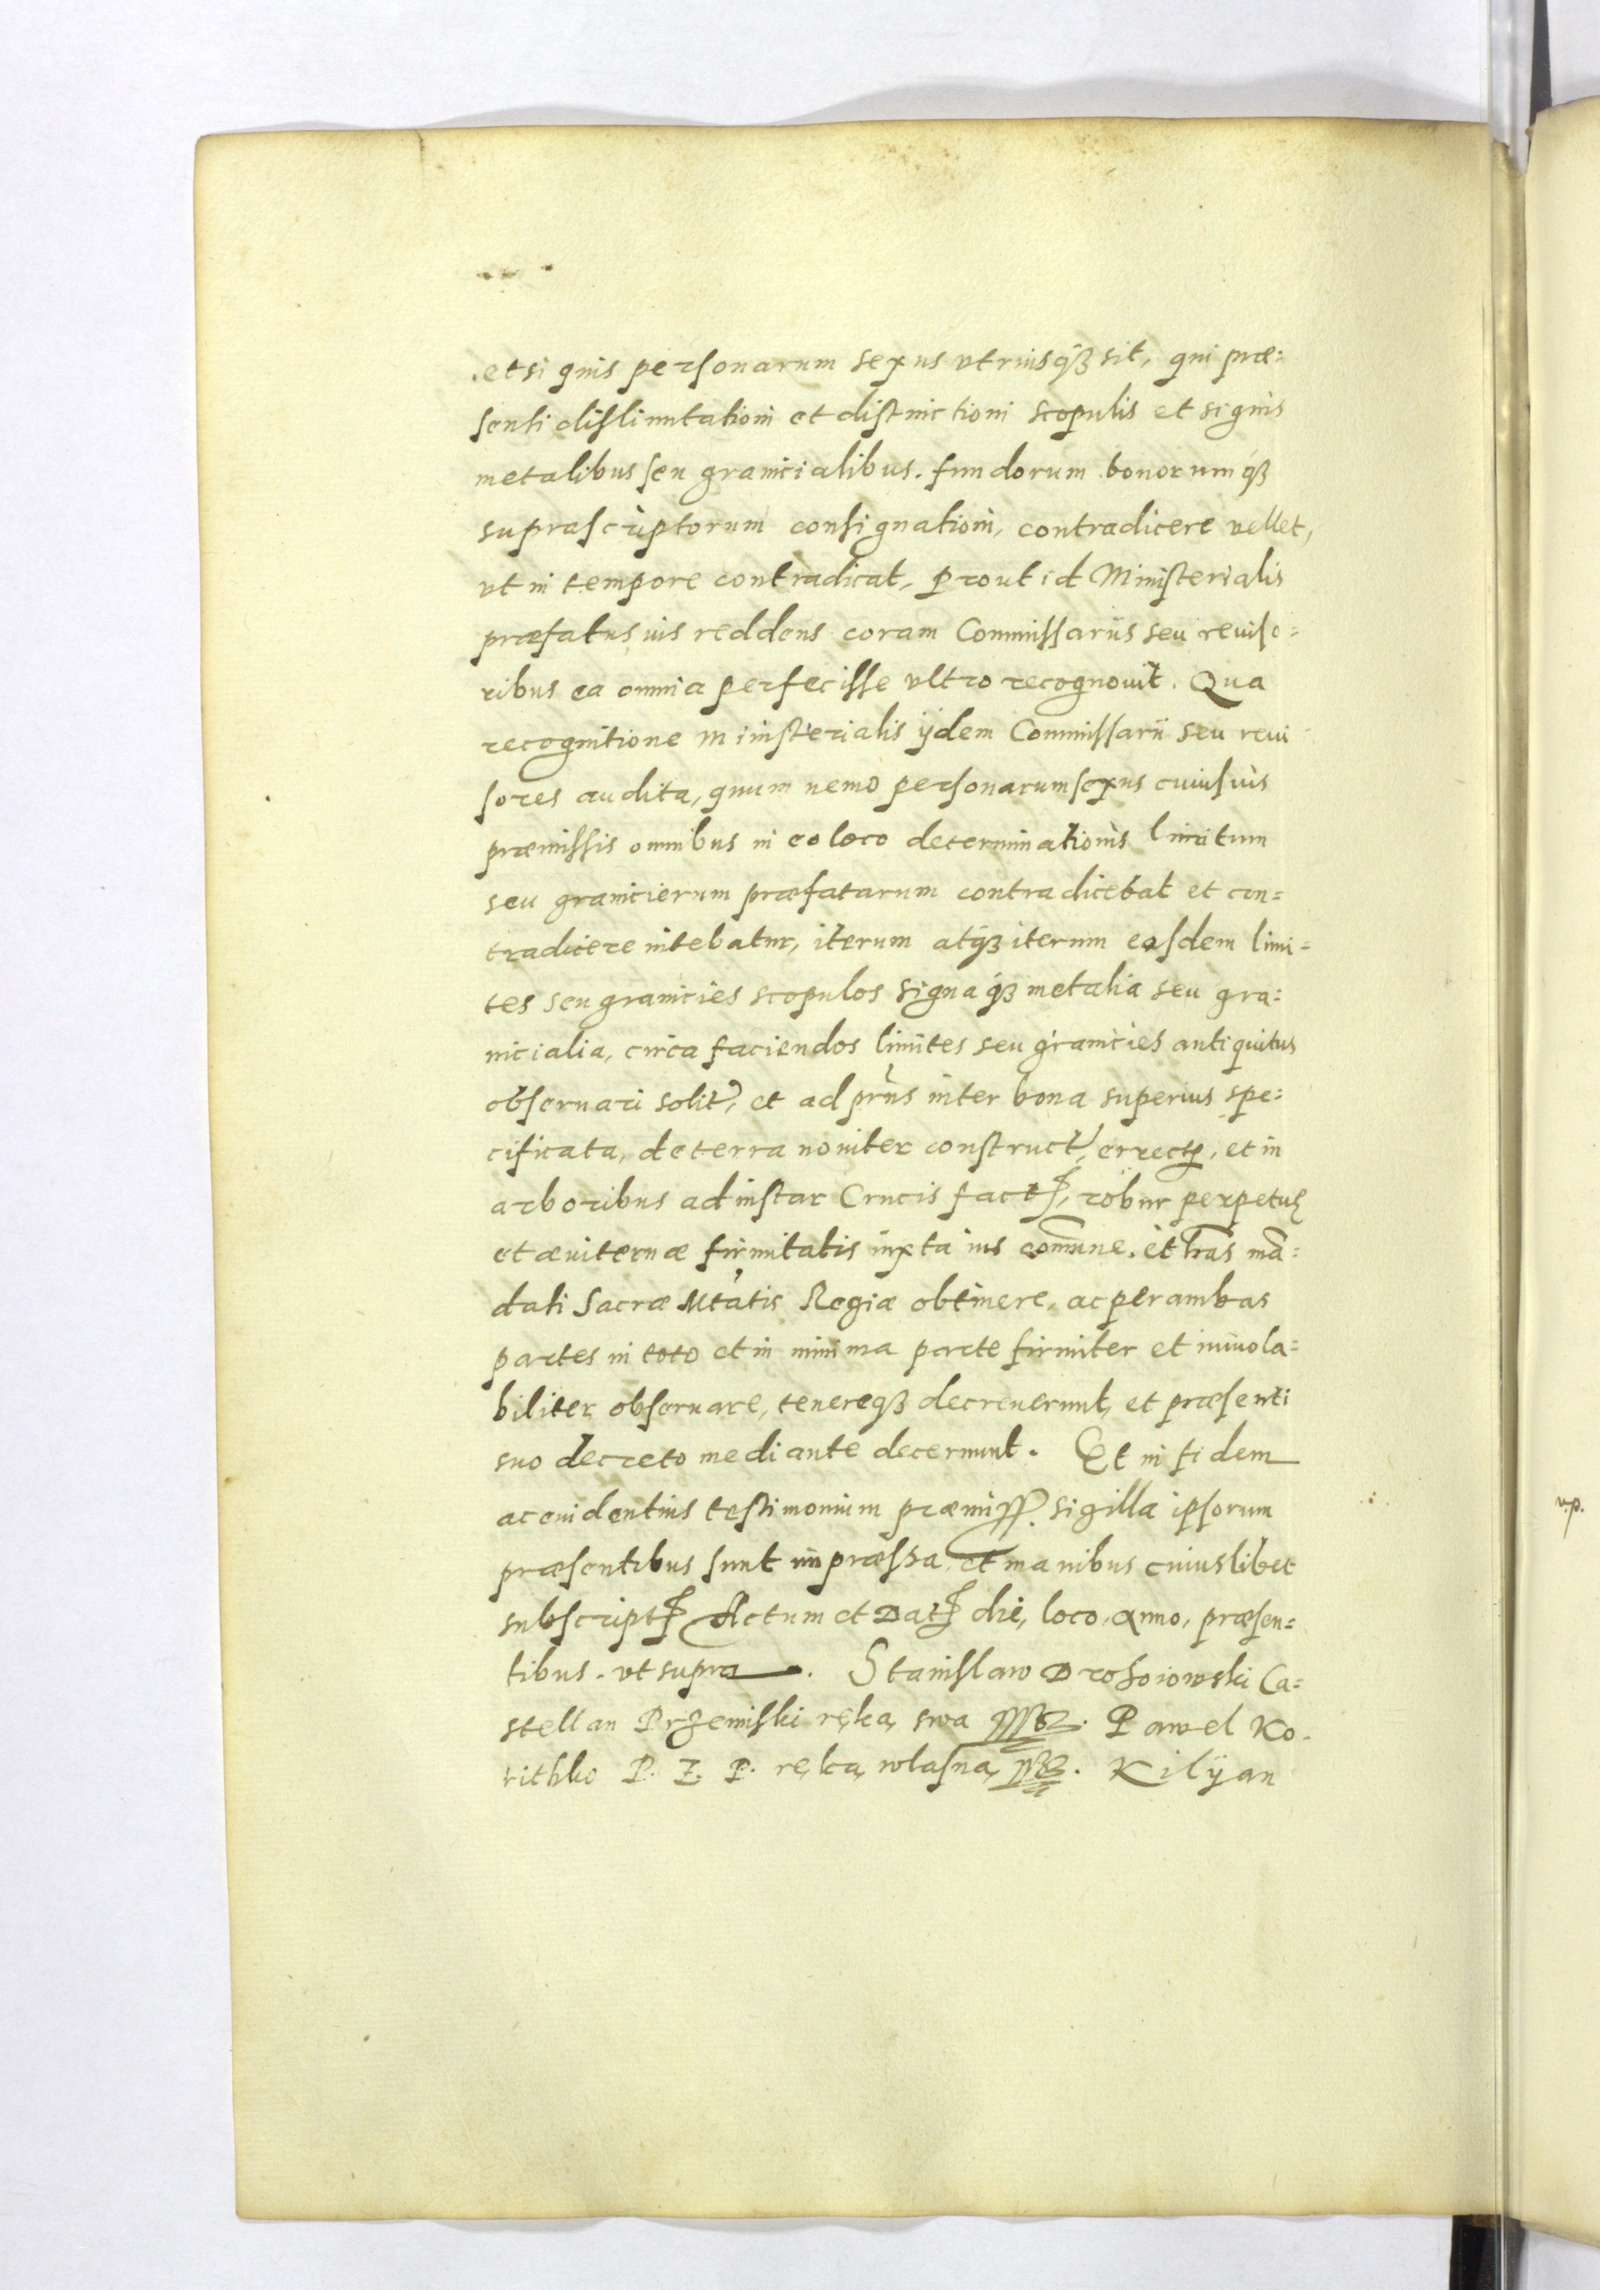 et si quis personarum sexus vtriusq3 sit, qui præ=
senti dislimitationi et distinctioni scopulis et signis
metalibus seu granicialibus. fundorum bonorumq3
suprascriptorum consignationi, contradicere vellet,
vt in tempore contradicat, prout id Ministerialis
præfatus, uis reddens coram Commissariis seu reuiso=
ribus ea omnia perfecisse vltro recognouit. Qua
recognitione ministerialis ijdem Commissarii seu reui
sores audita, quum nemo personarum sexus cuiusuis
præmissis omnibus in eo loco determinationis limitum
seu granicierum præfatarum contradicebat et con=
tradicere nitebatur, iterum atq3 iterum eosdem limi=
tes seu granicies scopulos signaq3 metalia seu gra=
nicialia, circa faciendos limites seu granicies antiquitus
obseruari solit, et ad prns inter bona superius spe=
cificata, de terra nouiter construct, errect, et in
arboribus ad instar Crucis fact, robur perpetuę
et æuiternæ firmitatis iuxta ius comune. et lras mā=
dati Sacræ Mtatis Regiæ obtinere, ac per ambas
partes in toto et in minima parte firmiter et inuiola=
biliter obseruare, tenereq3 decreuerunt, et præsenti
suo decreto mediante decernunt. Et in fidem
ac euidentius testimonium præmiss. sigilla ipsorum
præsentibus sunt impræssa, et manibus cuiuslibet
subscript Actum et Dat die, loco, anno, præsen=
tibus. vt supra. Stanislaw Drohoiowski Ca=
stellan Przemiski ręką swą Pawel Ko.
rithko P. Z. P. ręką własną. Kilÿan
v.p.